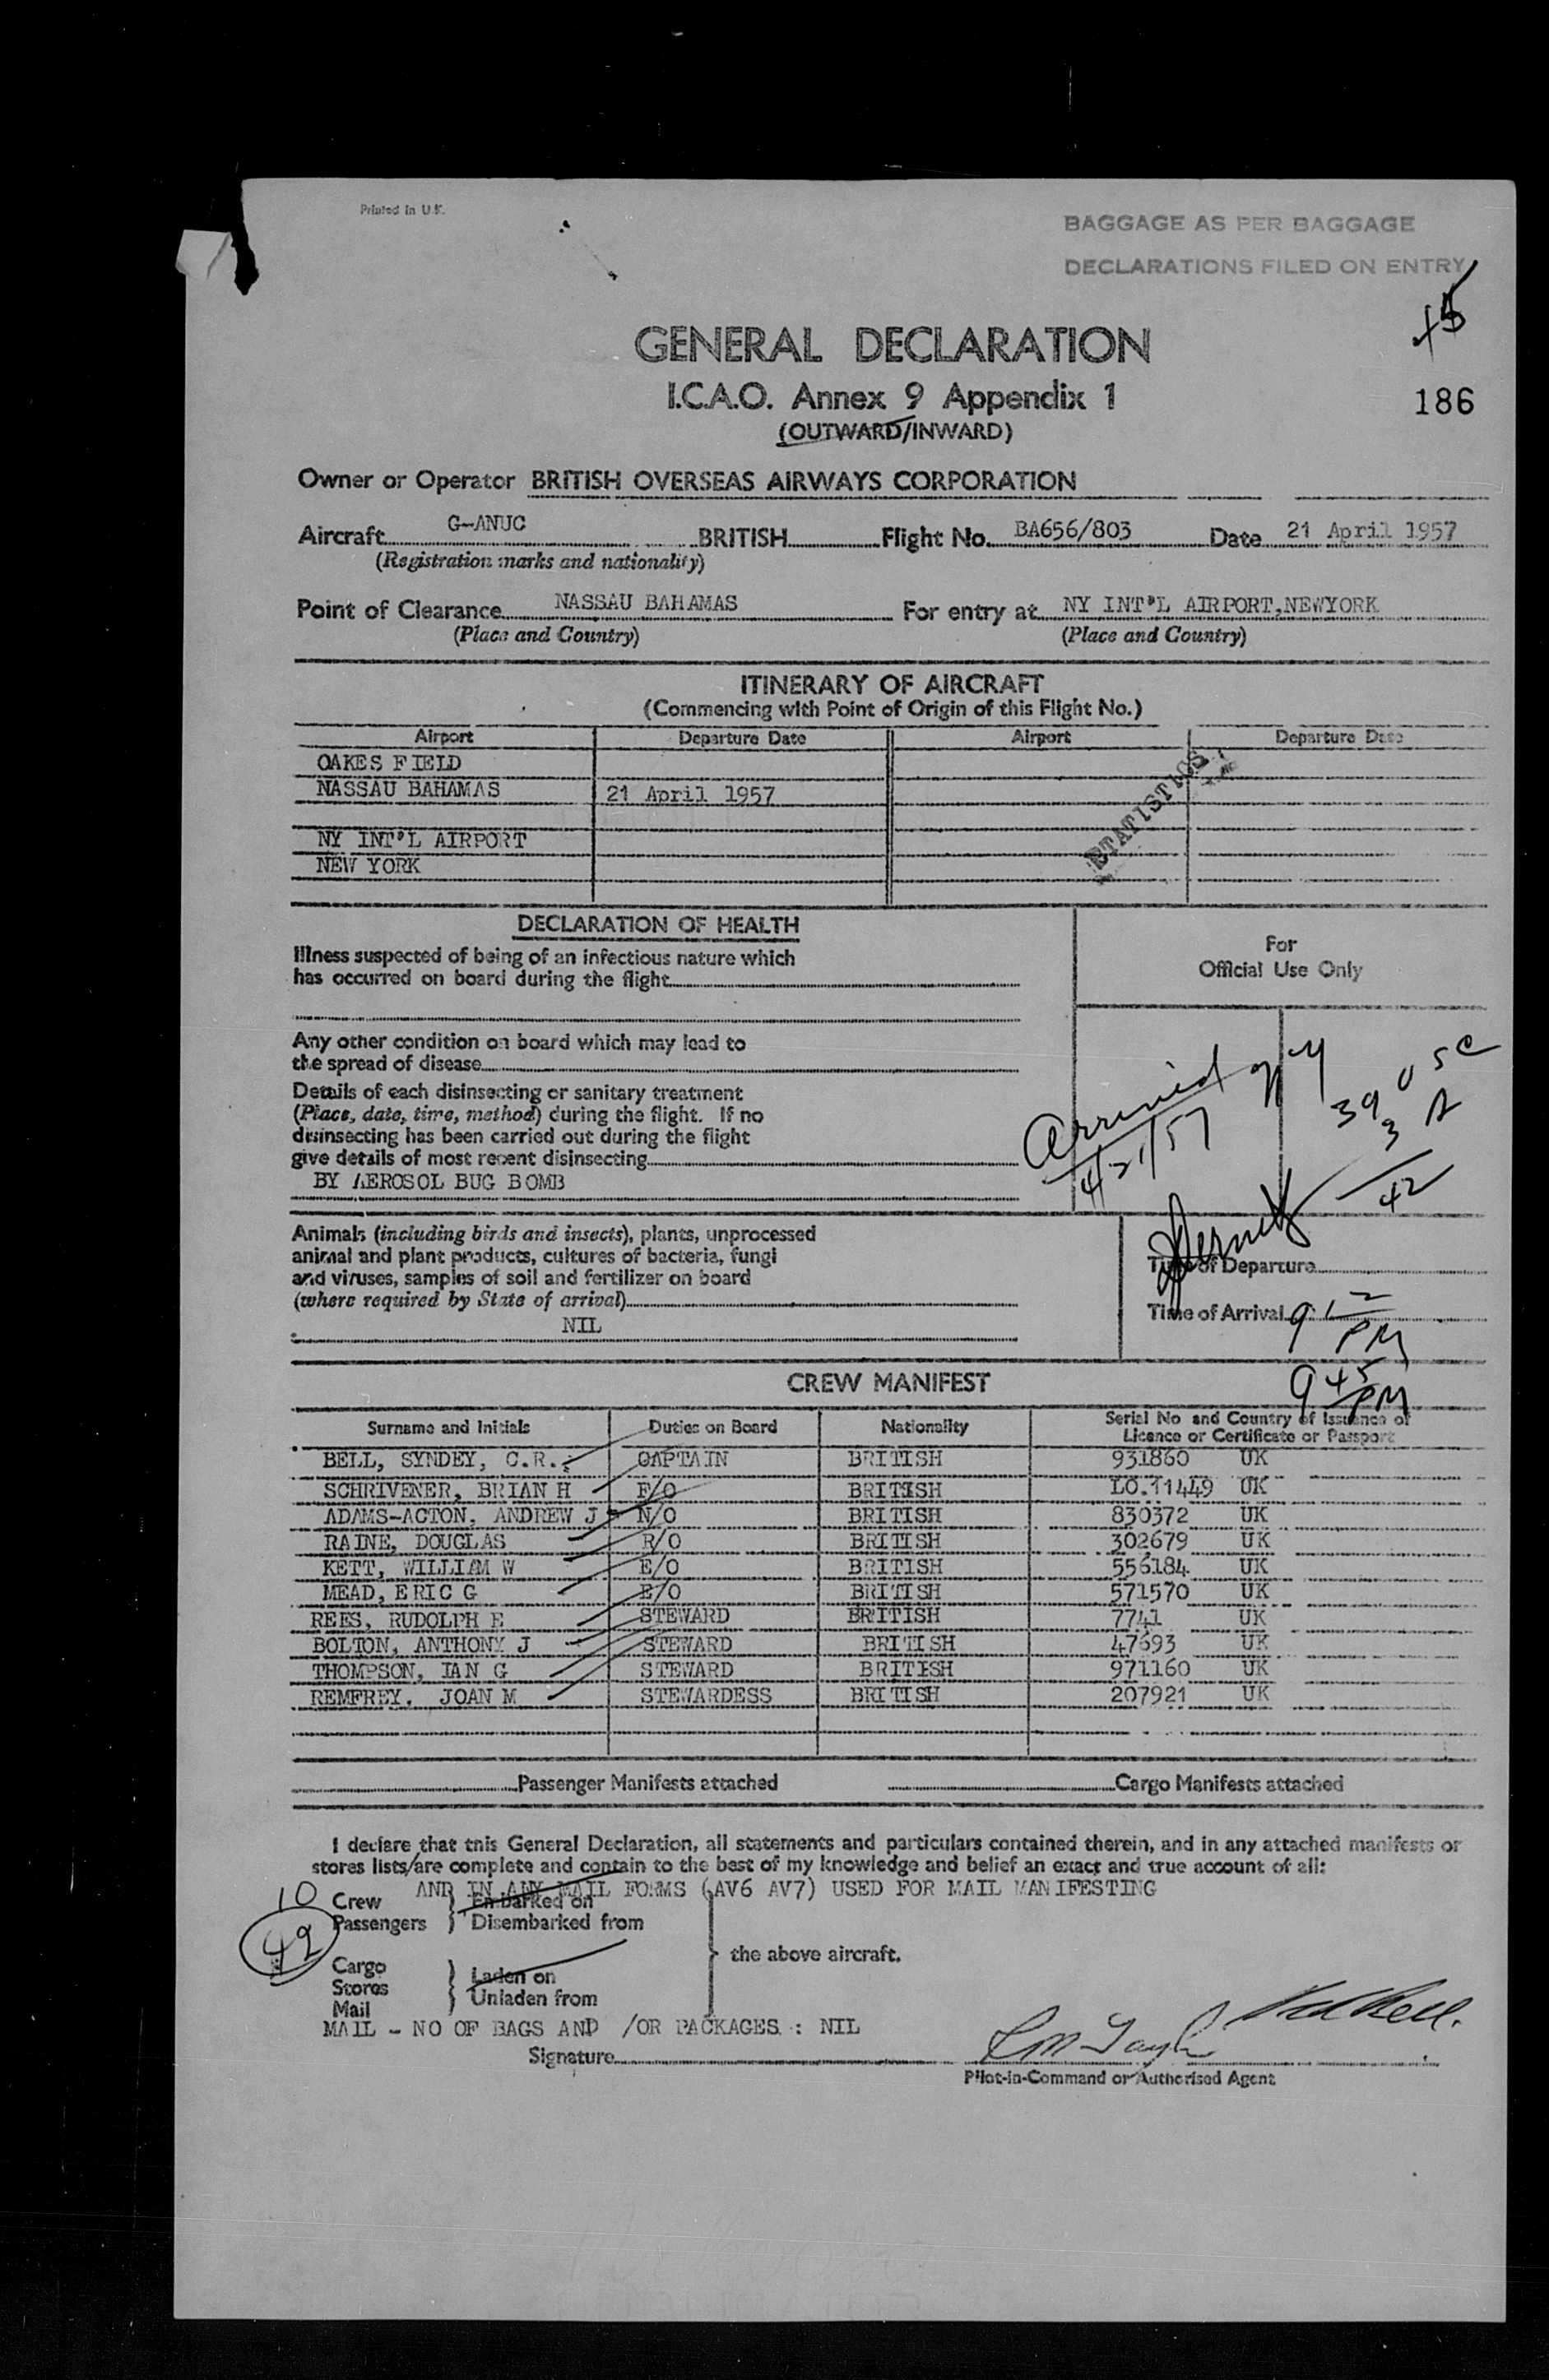 Printed in U.K.
BAGGAGE AS PER BAGGAGE
DECLARATIONS FILED ON ENTRY
186
GENERAL DECLARATION
I.C.A.O. Annex 9 Appendix 1
(OUTWARD/INWARD)
Owner or Operator BRITISH OVERSEAS AIRWAYS CORPORATION
Aircraft G-ANUC BRITISH Flight No. BA656/803 Date 21 April 1957
(Registration marks and nationality)
Point of Clearance NASSAU BAHAMAS For entry at NY INT'L AIRPORT,NEWYORK
(Place and Country) (Place and Country)
ITINERARY OF AIRCRAFT
(Commencing with Point of Origin of this Flight No.)
Airport Departure Date Airport Departure Date
OAKES FIELD
NASSAU BAHAMAS 21 April 1957
NY INT'L AIRPORT
NEW YORK
STATISTICS
DECLARATION OF HEALTH
For
Official Use Only
Illness suspected of being of an infectious nature which
has occurred on board during the flight
Any other condition on board which may lead to
the spread of disease
Details of each disinsecting or sanitary treatment
(Place, date, time, method) during the flight. If no
disinsecting has been carried out during the flight
give details of most recent disinsecting
BY AEROSOL BUG BOMB
Arrived NY
4/21/57
39 USC
3 A
42
Animals (including birds and insects), plants, unprocessed
animal and plant products, cultures of bacteria, fungi
and viruses, samples of soil and fertilizer on board
(where required by State of arrival)
NIL
Time of Departure
Time of Arrival 9 12 PM
9 45 PM
CREW MANIFEST
Surname and Initials Duties on Board Nationality Serial No and Country of Issuance of
Licence or Certificate or Passport
BELL, SYNDEY, C.R. CAPTAIN BRITISH 931860 UK
SCHRIVENER, BRIAN H F/O BRITISH LO.11449 UK
ADAMS-ACTON, ANDREW J N/O BRITISH 830372 UK
RAINE, DOUGLAS R/O BRITISH 302679 UK
KETT, WILLIAM W E/O BRITISH 556184 UK
MEAD, ERIC G E/O BRITISH 571570 UK
REES, RUDOLPH E STEWARD BRITISH 7741 UK
BOLTON, ANTHONY J STEWARD BRITISH 47693 UK
THOMPSON, IAN G STEWARD BRITISH 971160 UK
REMFREY, JOAN M STEWARDESS BRITISH 207921 UK
Passenger Manifests attached Cargo Manifests attached
I declare that this General Declaration, all statements and particulars contained therein, and in any attached manifests or
stores lists/are complete and contain to the best of my knowledge and belief an exact and true account of all:
AND IN ANY MAIL FORMS (AV6 AV7) USED FOR MAIL MANIFESTING
10 Crew Embarked on
42 Passengers Disembarked from
the above aircraft.
Cargo Laden on
Stores Unladen from
Mail
MAIL - NO OF BAGS AND /OR PACKAGES : NIL
Signature
Pilot-in-Command or Authorised Agent